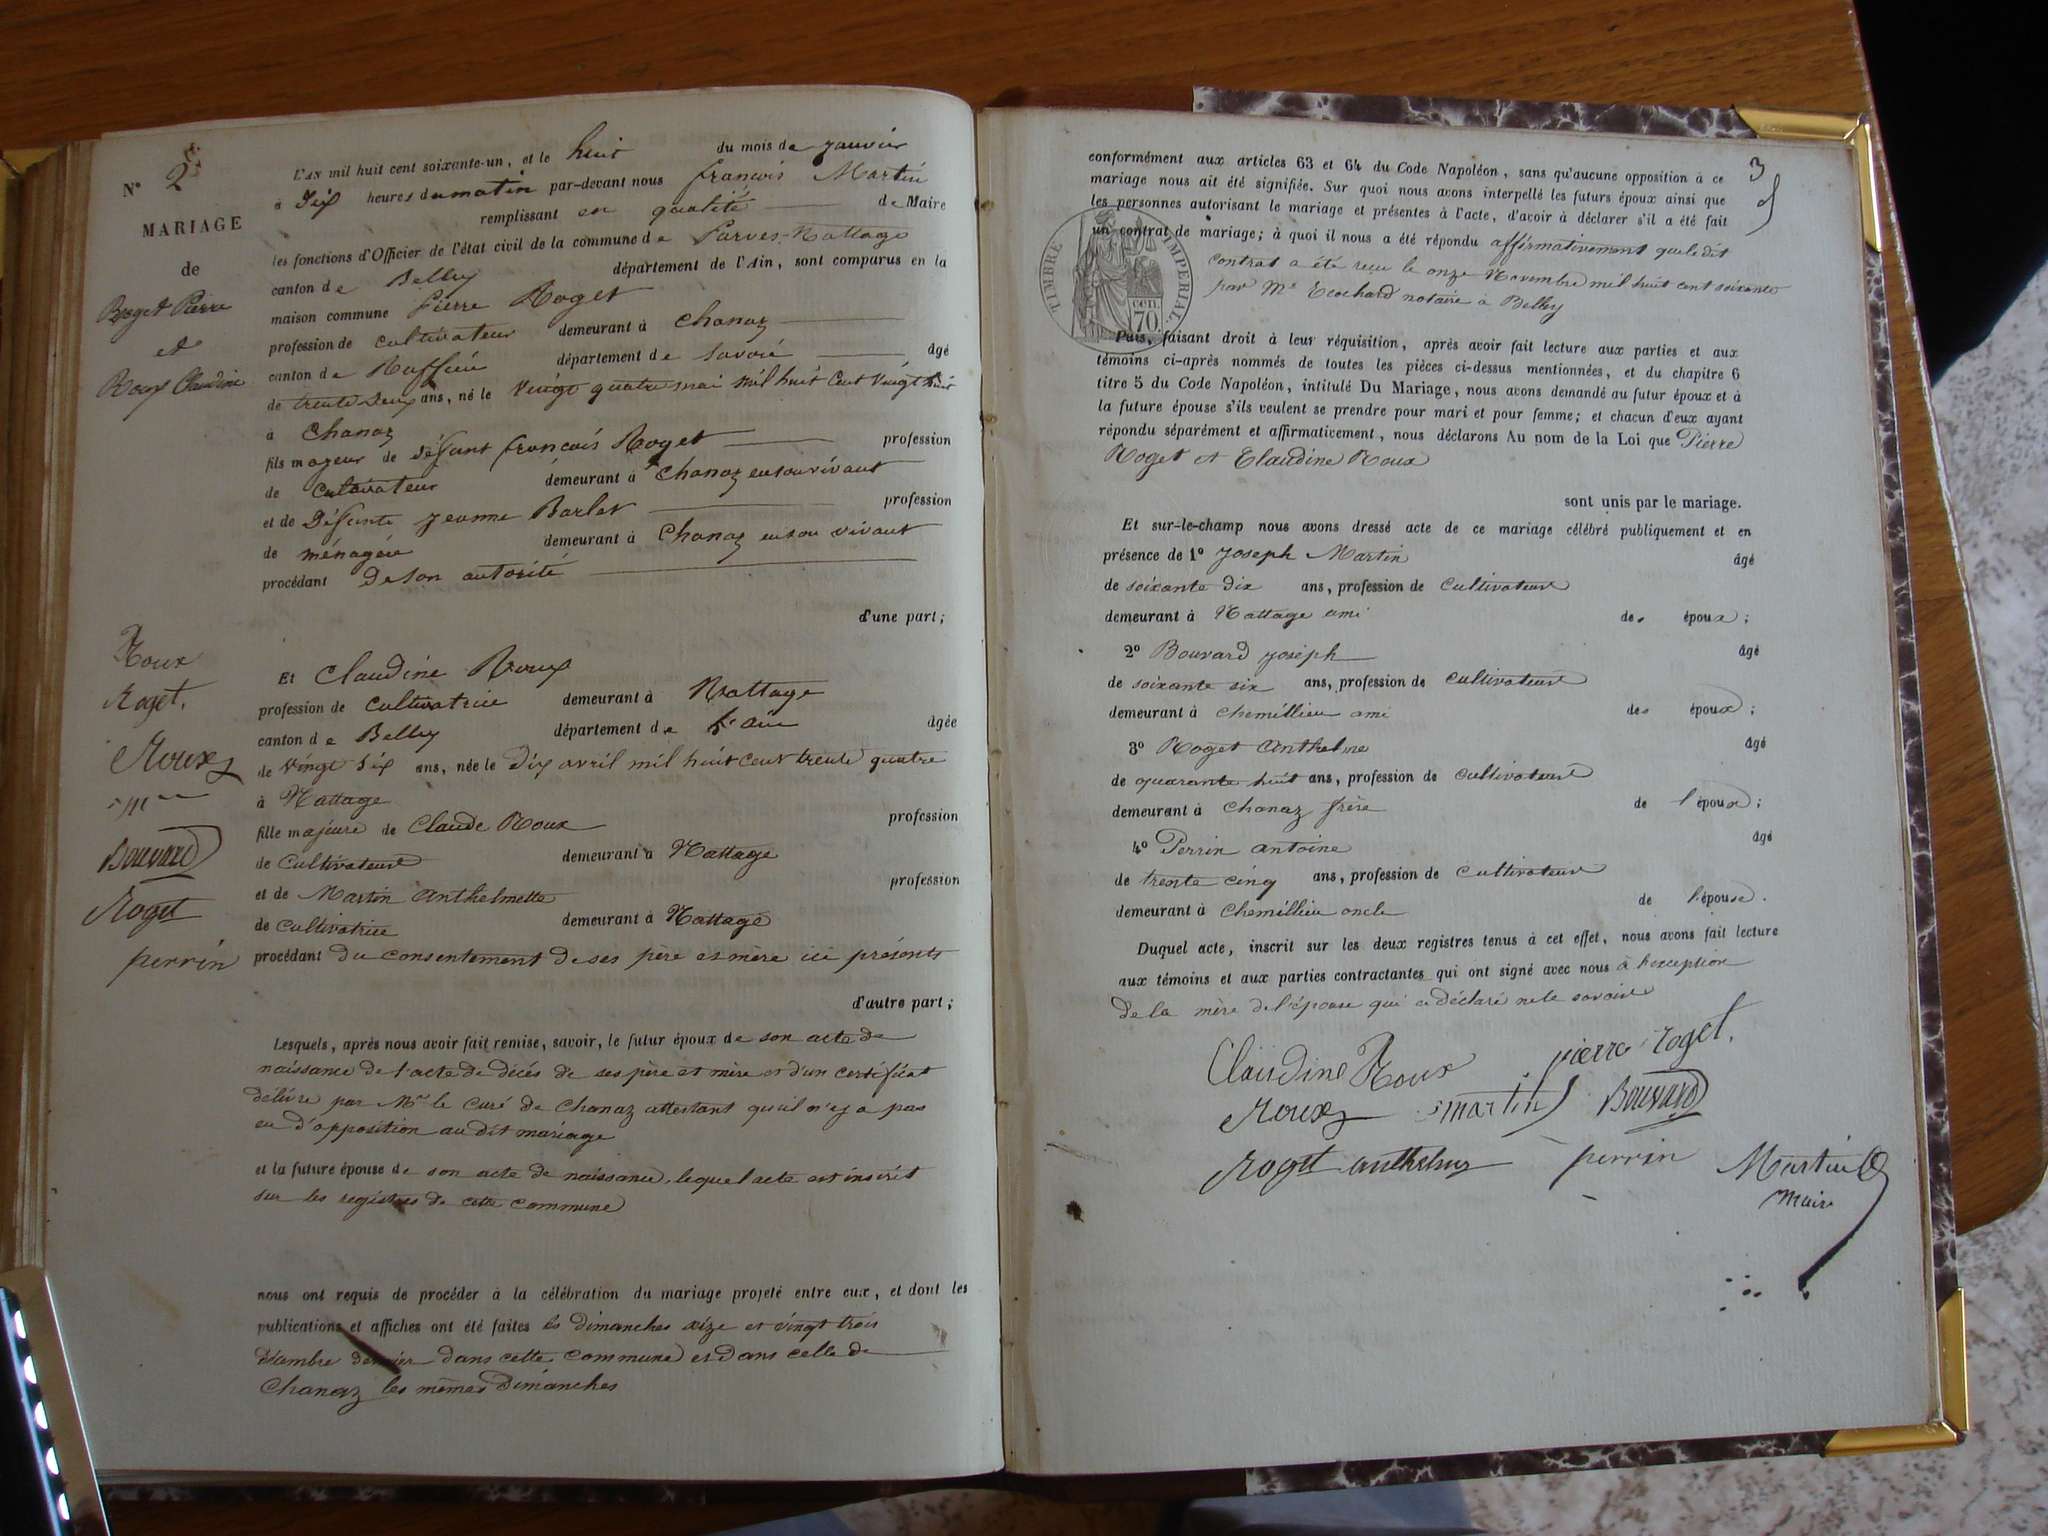 N° 2
MARIAGE
de
Roget Pierre
et
Roux Claudine
Roux
Roget.
Roux
Bouvard
Roget
perrin
L'AN mil huit cent soixante-un, et le huit du mois de janvier
à Dix heures du matin par-devant nous françois Martin
remplissant en qualité de Maire
les fonctions d'Officier de l'état civil de la commune de Parves-Nattage
canton de Belley département de l'Ain, sont comparus en la
maison commune Pierre Roget
profession de cultivateur demeurant à Chanaz
canton de Ruffieu département de Savoie âgé
de trente deux ans, né le vingt quatre mai mil huit cent vingt huit
à Chanaz
fils majeur de défunt françois Roget profession
de cultivateur demeurant à Chanaz en son vivant
et de Défunte jeanne Barlet profession
de ménagère demeurant à Chanaz en son vivant
procédant de son autorité
d'une part;
Et Claudine Roux
profession de cultivatrice demeurant à Nattage
canton de Belley département de l'ain âgée
de vingt six ans, née le dix avril mil huit cent trente quatre
à Nattage
fille majeure de Claude Roux profession
de cultivateur demeurant à Nattage
et de Martin Anthelmette profession
de cultivatrice demeurant à Nattage
procédant du consentement de ses père et mère ici présents
d'autre part;
Lesquels, après nous avoir fait remise, savoir, le futur époux de son acte de
naissance de l'acte de décès de ses père et mère et d'un certificat
délivré par Mr le curé de Chanaz attestant qu'il n'ey a pas
eu d'opposition au dit mariage
et la future épouse de son acte de naissance, lequel acte est inscrit
sur les registres de cette commune
nous ont requis de procéder à la célébration du mariage projeté entre eux, et dont les
publications et affiches ont été faites les dimanches seize et vingt trois
décembre dernier dans cette commune et dans celle de
Chanaz les mêmes dimanches
3
conformément aux articles 63 et 64 du Code Napoléon, sans qu'aucune opposition à ce
mariage nous ait été signifiée. Sur quoi nous avons interpellé les futurs époux ainsi que
les personnes autorisant le mariage et présentes à l'acte, d'avoir à déclarer s'il a été fait
un contrat de mariage; à quoi il nous a été répondu affirmativement que le dit
contrat a été reçu le onze Novembre mil huit cent soixante
par Me Ecochard notaire à Belley
TIMBRE IMPERIAL
CEN.
70.
Puis, faisant droit à leur réquisition, après avoir fait lecture aux parties et aux
témoins ci-après nommés de toutes les pièces ci-dessus mentionnées, et du chapitre 6
titre 5 du Code Napoléon, intitulé Du Mariage, nous avons demandé au futur époux et à
la future épouse s'ils veulent se prendre pour mari et pour femme; et chacun d'eux ayant
répondu séparément et affirmativement, nous déclarons Au nom de la Loi que Pierre
Roget et Claudine Roux
sont unis par le mariage.
Et sur-le-champ nous avons dressé acte de ce mariage célébré publiquement et en
présence de 1° Joseph Martin âgé
de soixante dix ans, profession de cultivateur
demeurant à Nattage ami des époux;
2° Bouvard joseph âgé
de soixante six ans, profession de cultivateur
demeurant à chemillieu ami des époux;
3° Roget Anthelme âgé
de quarante huit ans, profession de cultivateur
demeurant à chanaz frère de l'époux;
4° Perrin antoine âgé
de trente cinq ans, profession de cultivateur
demeurant à chemillieu oncle de l'épouse.
Duquel acte, inscrit sur les deux registres tenus à cet effet, nous avons fait lecture
aux témoins et aux parties contractantes qui ont signé avec nous à l'exception
de la mère de l'épouse qui a déclaré ne le savoir
Claudine Roux pierre roget.
Roux martin Bouvard
Roget anthelme perrin Martin
Maire